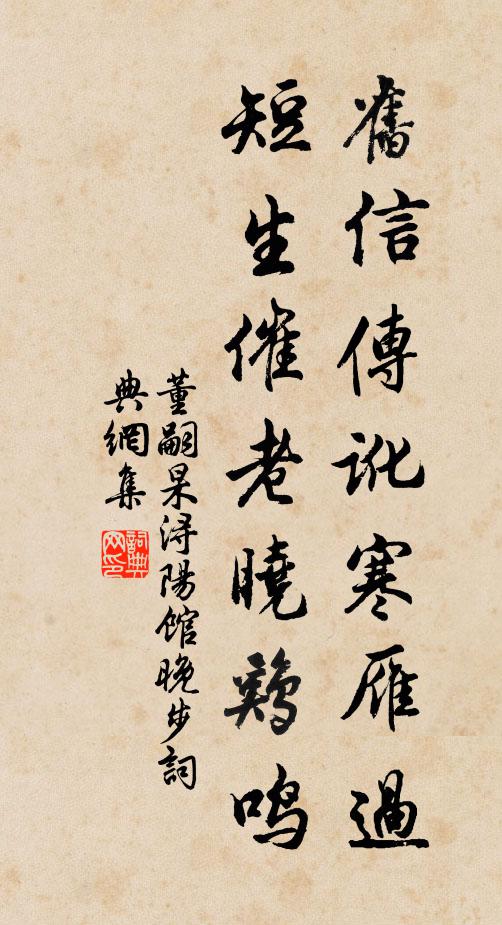 舊信傳訛寒雁過
短生催老曉鷄鳴
董嗣杲浔陽館晚步詞
典網集
詞典網印